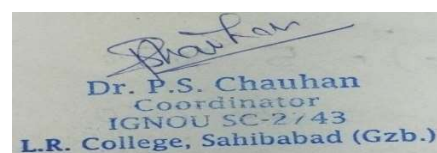 Chauhan
Dr. P.S. Chauhan
Coordinator
IGNOU SC-2743
L.R. College, Sahibabad (Gzb.)